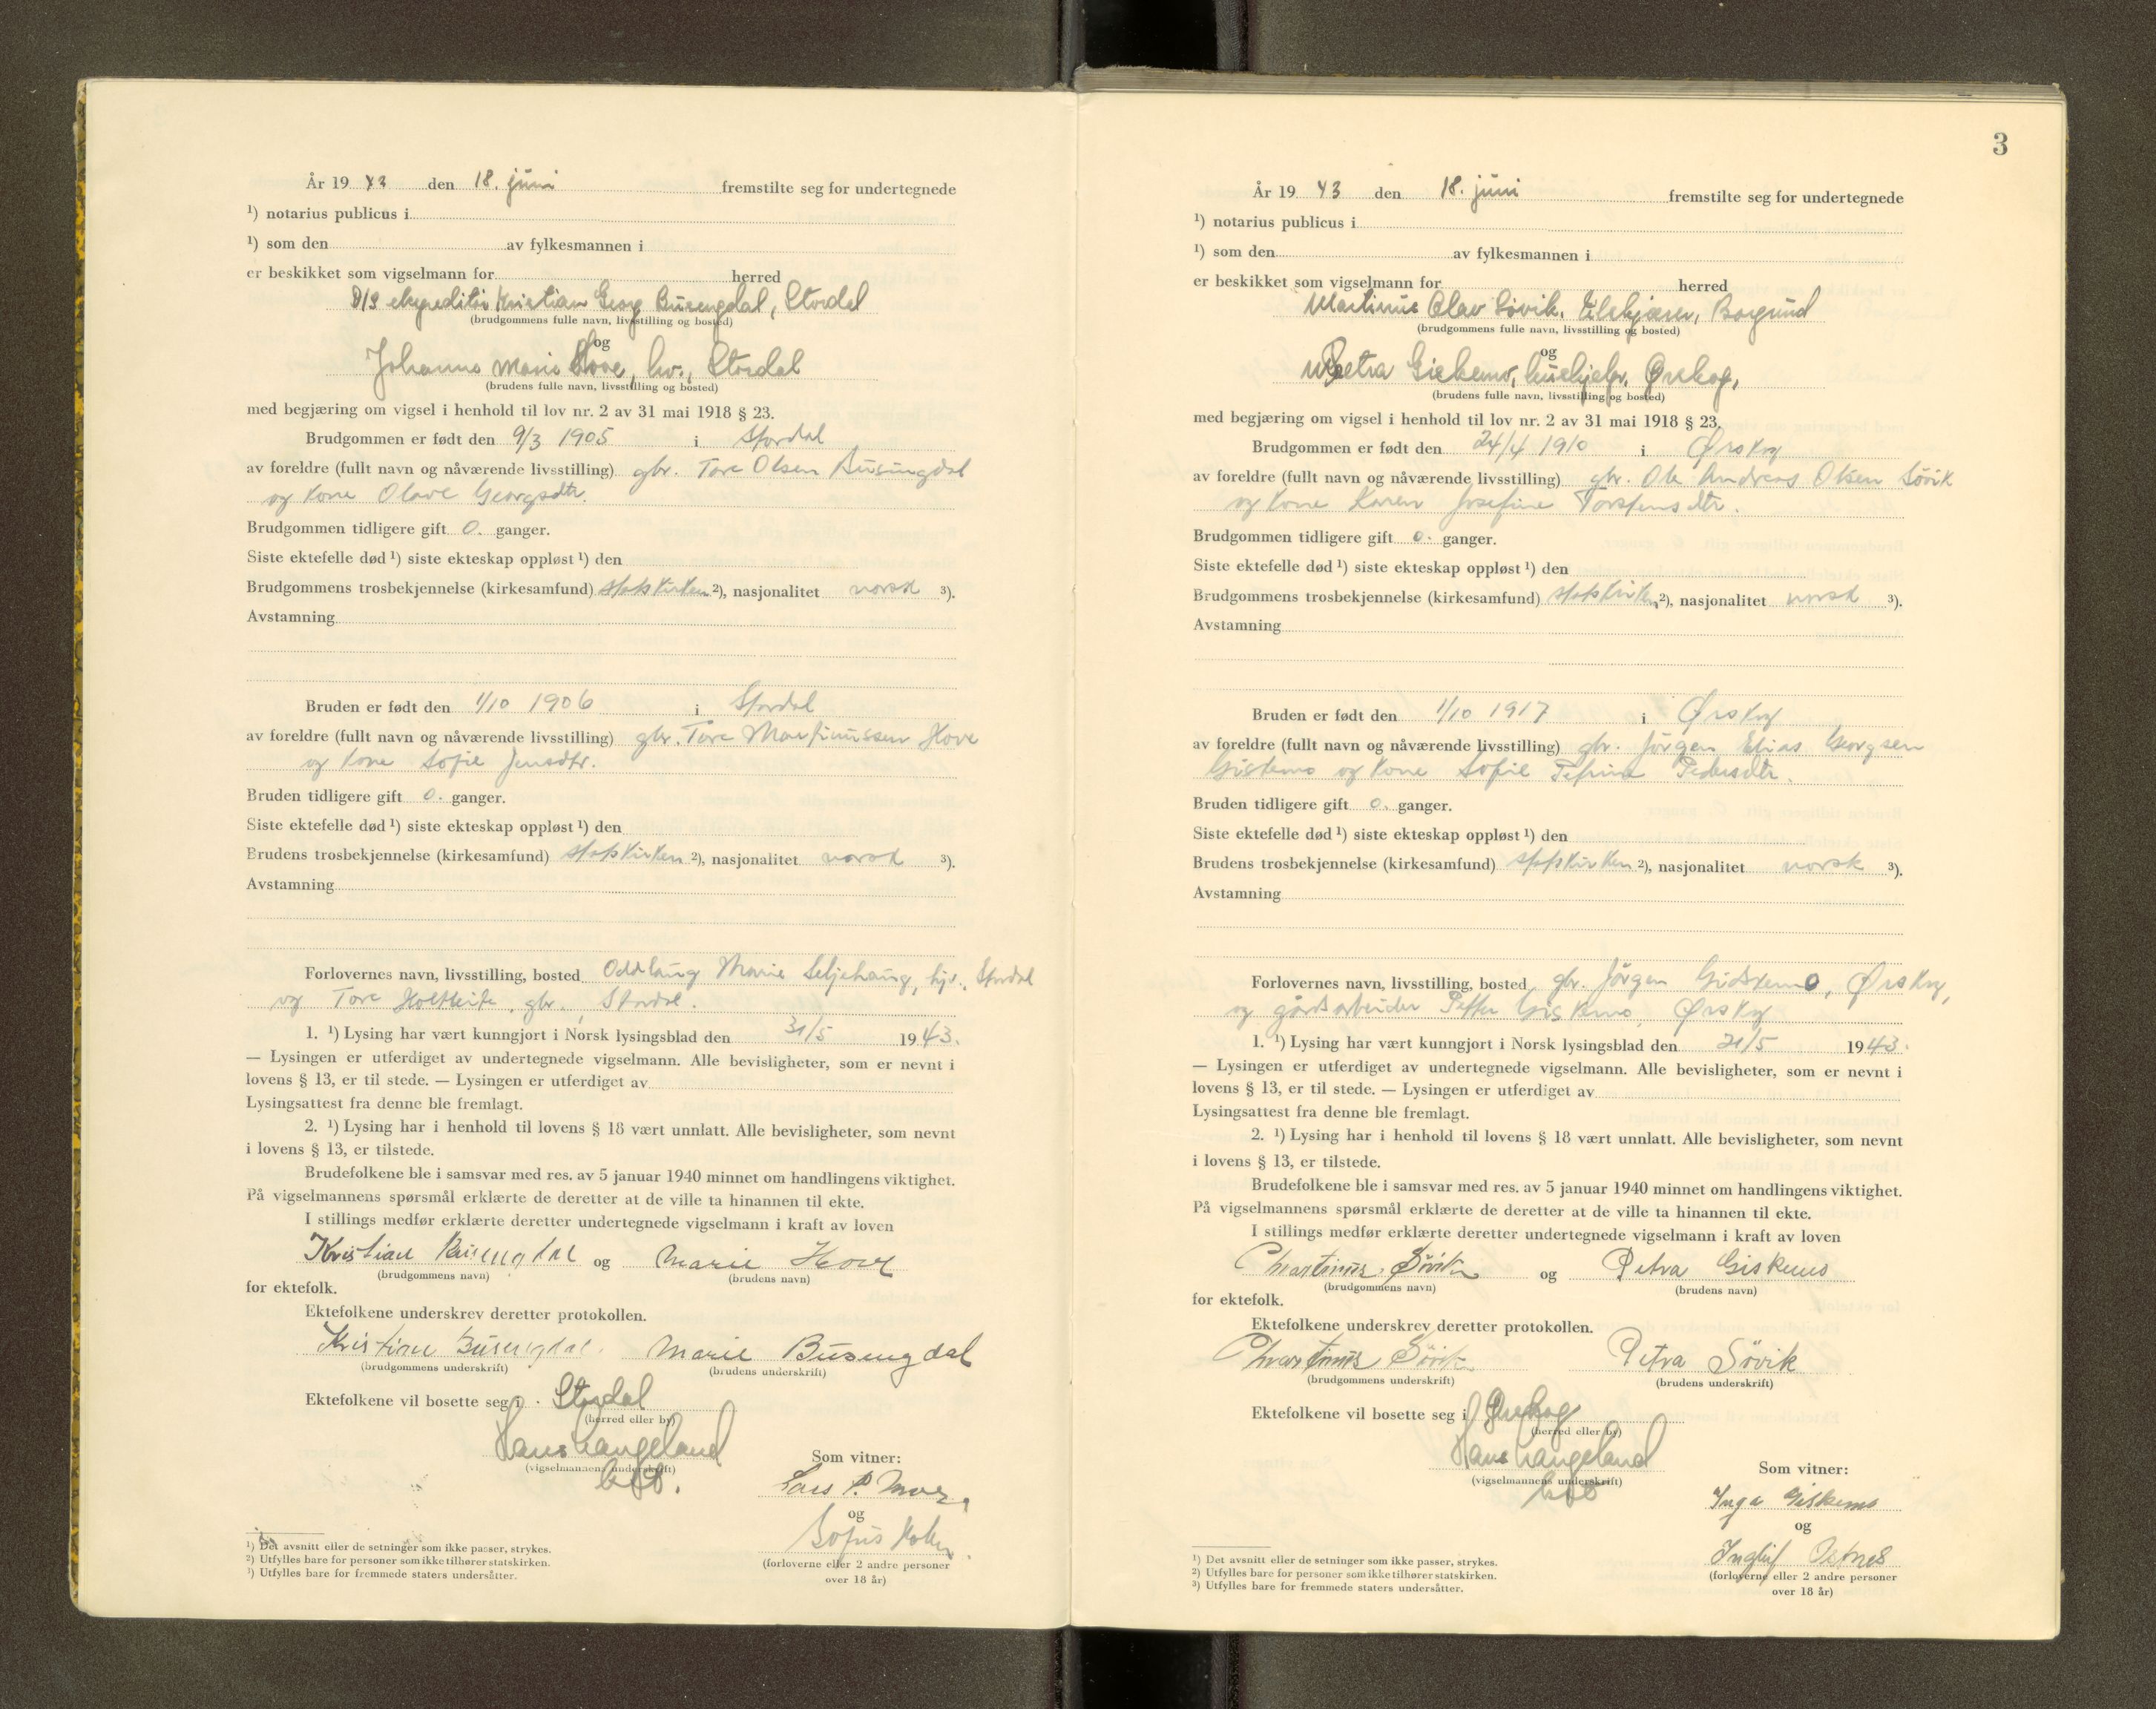 År 19 43 den 18. juni fremstilte seg for undertegnede
¹) notarius publicus i
¹) som den av fylkesmannen i
er beskikket som vigselmann for herred
D/S ekspeditör Kristian Georg Busengdal, Stordal
(brudgommens fulle navn, livsstilling og bosted)
og
Johanne Marie Hove, hv., Stordal
(brudens fulle navn, livsstilling og bosted)
med begjæring om vigsel i henhold til lov nr. 2 av 31 mai 1918 § 23.
Brudgommen er født den 9/3 1905 i Stordal
av foreldre (fullt navn og nåværende livsstilling) gbr. Tore Olsen Busungdal
og kone Olave Georgsdtr.
Brudgommen tidligere gift 0. ganger.
Siste ektefelle død ¹) siste ekteskap oppløst ¹) den
Brudgommens trosbekjennelse (kirkesamfund) statskirken ²), nasjonalitet norsk ³).
Avstamning
Bruden er født den 1/10 1906 i Stordal
av foreldre (fullt navn og nåværende livsstilling) gbr. Tore Martinussen Hove
og kone Sofie Jensdtr.
Bruden tidligere gift 0. ganger.
Siste ektefelle død ¹) siste ekteskap oppløst ¹) den
Brudens trosbekjennelse (kirkesamfund) statskirken ²), nasjonalitet norsk ³).
Avstamning
Forlovernes navn, livsstilling, bosted Oddlaug Marie Seljehaug, hjv., Stordal
og Tore Holtheite, gbr., Stordal.
1. ¹) Lysing har vært kunngjort i Norsk lysingsblad den 31/5 1943.
— Lysingen er utferdiget av undertegnede vigselmann. Alle bevisligheter, som er nevnt i
lovens § 13, er til stede. — Lysingen er utferdiget av
Lysingsattest fra denne ble fremlagt.
2. ¹) Lysing har i henhold til lovens § 18 vært unnlatt. Alle bevisligheter, som nevnt
i lovens § 13, er tilstede.
Brudefolkene ble i samsvar med res. av 5 januar 1940 minnet om handlingens viktighet.
På vigselmannens spørsmål erklærte de deretter at de ville ta hinannen til ekte.
I stillings medfør erklærte deretter undertegnede vigselmann i kraft av loven
Kristian Busengdal og Marie Hove
(brudgommens navn) (brudens navn)
for ektefolk.
Ektefolkene underskrev deretter protokollen.
Kristian Busengdal. Marie Busengdal
(brudgommens underskrift) (brudens underskrift)
Ektefolkene vil bosette seg i Stordal
(herred eller by)
Hans Langeland
(vigselmannens underskrift)
Som vitner:
Lars P. Moe
og
Sofus
(forloverne eller 2 andre personer
over 18 år)
¹) Det avsnitt eller de setninger som ikke passer, strykes.
²) Utfylles bare for personer som ikke tilhører statskirken.
³) Utfylles bare for fremmede staters undersåtter.
3
År 19 43 den 18. juni fremstilte seg for undertegnede
¹) notarius publicus i
¹) som den av fylkesmannen i
er beskikket som vigselmann for herred
Martinus Olav Sövik, Borgund
(brudgommens fulle navn, livsstilling og bosted)
og
Petra Giskemo, hushjelp, Ørskog,
(brudens fulle navn, livsstilling og bosted)
med begjæring om vigsel i henhold til lov nr. 2 av 31 mai 1918 § 23.
Brudgommen er født den 24/4 1910 i Ørskog
av foreldre (fullt navn og nåværende livsstilling) gbr. Ole Andreas Olsen Sövik
og kone Karen Josefine Torstensdtr.
Brudgommen tidligere gift 0. ganger.
Siste ektefelle død ¹) siste ekteskap oppløst ¹) den
Brudgommens trosbekjennelse (kirkesamfund) statskirken ²), nasjonalitet norsk ³).
Avstamning
Bruden er født den 1/10 1917 i Ørskog
av foreldre (fullt navn og nåværende livsstilling) gbr. Jörgen Elias Georgsen
Giskemo og kone Sofie Petrine Pedersdtr.
Bruden tidligere gift 0. ganger.
Siste ektefelle død ¹) siste ekteskap oppløst ¹) den
Brudens trosbekjennelse (kirkesamfund) statskirken ²), nasjonalitet norsk ³).
Avstamning
Forlovernes navn, livsstilling, bosted gbr. Jörgen Gidskemo, Ørskog,
og gårdsarbeider Petter Giskemo, Ørskog
1. ¹) Lysing har vært kunngjort i Norsk lysingsblad den 31/5 1943.
— Lysingen er utferdiget av undertegnede vigselmann. Alle bevisligheter, som er nevnt i
lovens § 13, er til stede. — Lysingen er utferdiget av
Lysingsattest fra denne ble fremlagt.
2. ¹) Lysing har i henhold til lovens § 18 vært unnlatt. Alle bevisligheter, som nevnt
i lovens § 13, er tilstede.
Brudefolkene ble i samsvar med res. av 5 januar 1940 minnet om handlingens viktighet.
På vigselmannens spørsmål erklærte de deretter at de ville ta hinannen til ekte.
I stillings medfør erklærte deretter undertegnede vigselmann i kraft av loven
Martinus Sövik og Petra Giskemo
(brudgommens navn) (brudens navn)
for ektefolk.
Ektefolkene underskrev deretter protokollen.
Martinus Sövik Petra Sövik
(brudgommens underskrift) (brudens underskrift)
Ektefolkene vil bosette seg i Ørskog
(herred eller by)
Hans Langeland
(vigselmannens underskrift)
Som vitner:
Inga Giskemo
og
Ingluf Detnes
(forloverne eller 2 andre personer
over 18 år)
¹) Det avsnitt eller de setninger som ikke passer, strykes.
²) Utfylles bare for personer som ikke tilhører statskirken.
³) Utfylles bare for fremmede staters undersåtter.